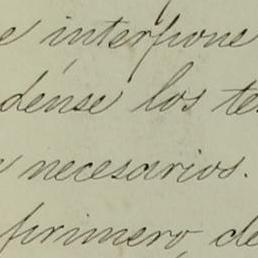 e interpone
dénse los te
necesarios.
primero, de